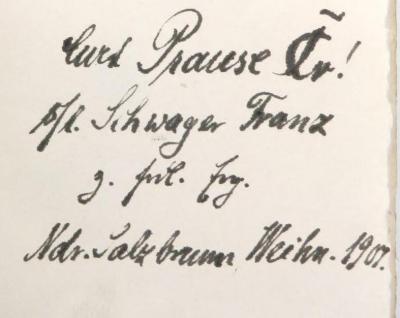 Curt Prause Cr!
s/l. Schwager Franz
z. frl. Erg.
Ndr. Salzbrunn Weihn. 1901.